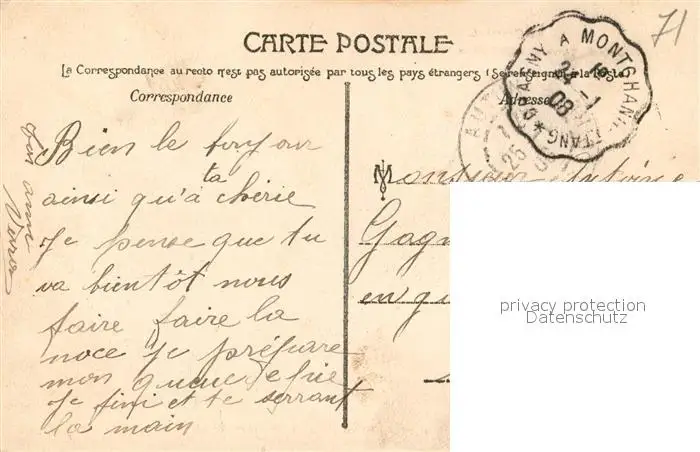 71
CARTE POSTALE
La Correspondance au recto n'est pas autorisée par tous les pays étrangers (Se renseigner à la Poste)
Correspondance
Adresse
A MONTCHANIN
24 1
08
AUT
25
Bien le bonjour
ainsi qu'à ta chérie
Je pense que tu
va bientôt nous
faire faire la
noce je prépare
mon queue
Je fini et te serrant
la main
Ton ami
Monsieur Antoine
Gagn
en
privacy protection
Datenschutz